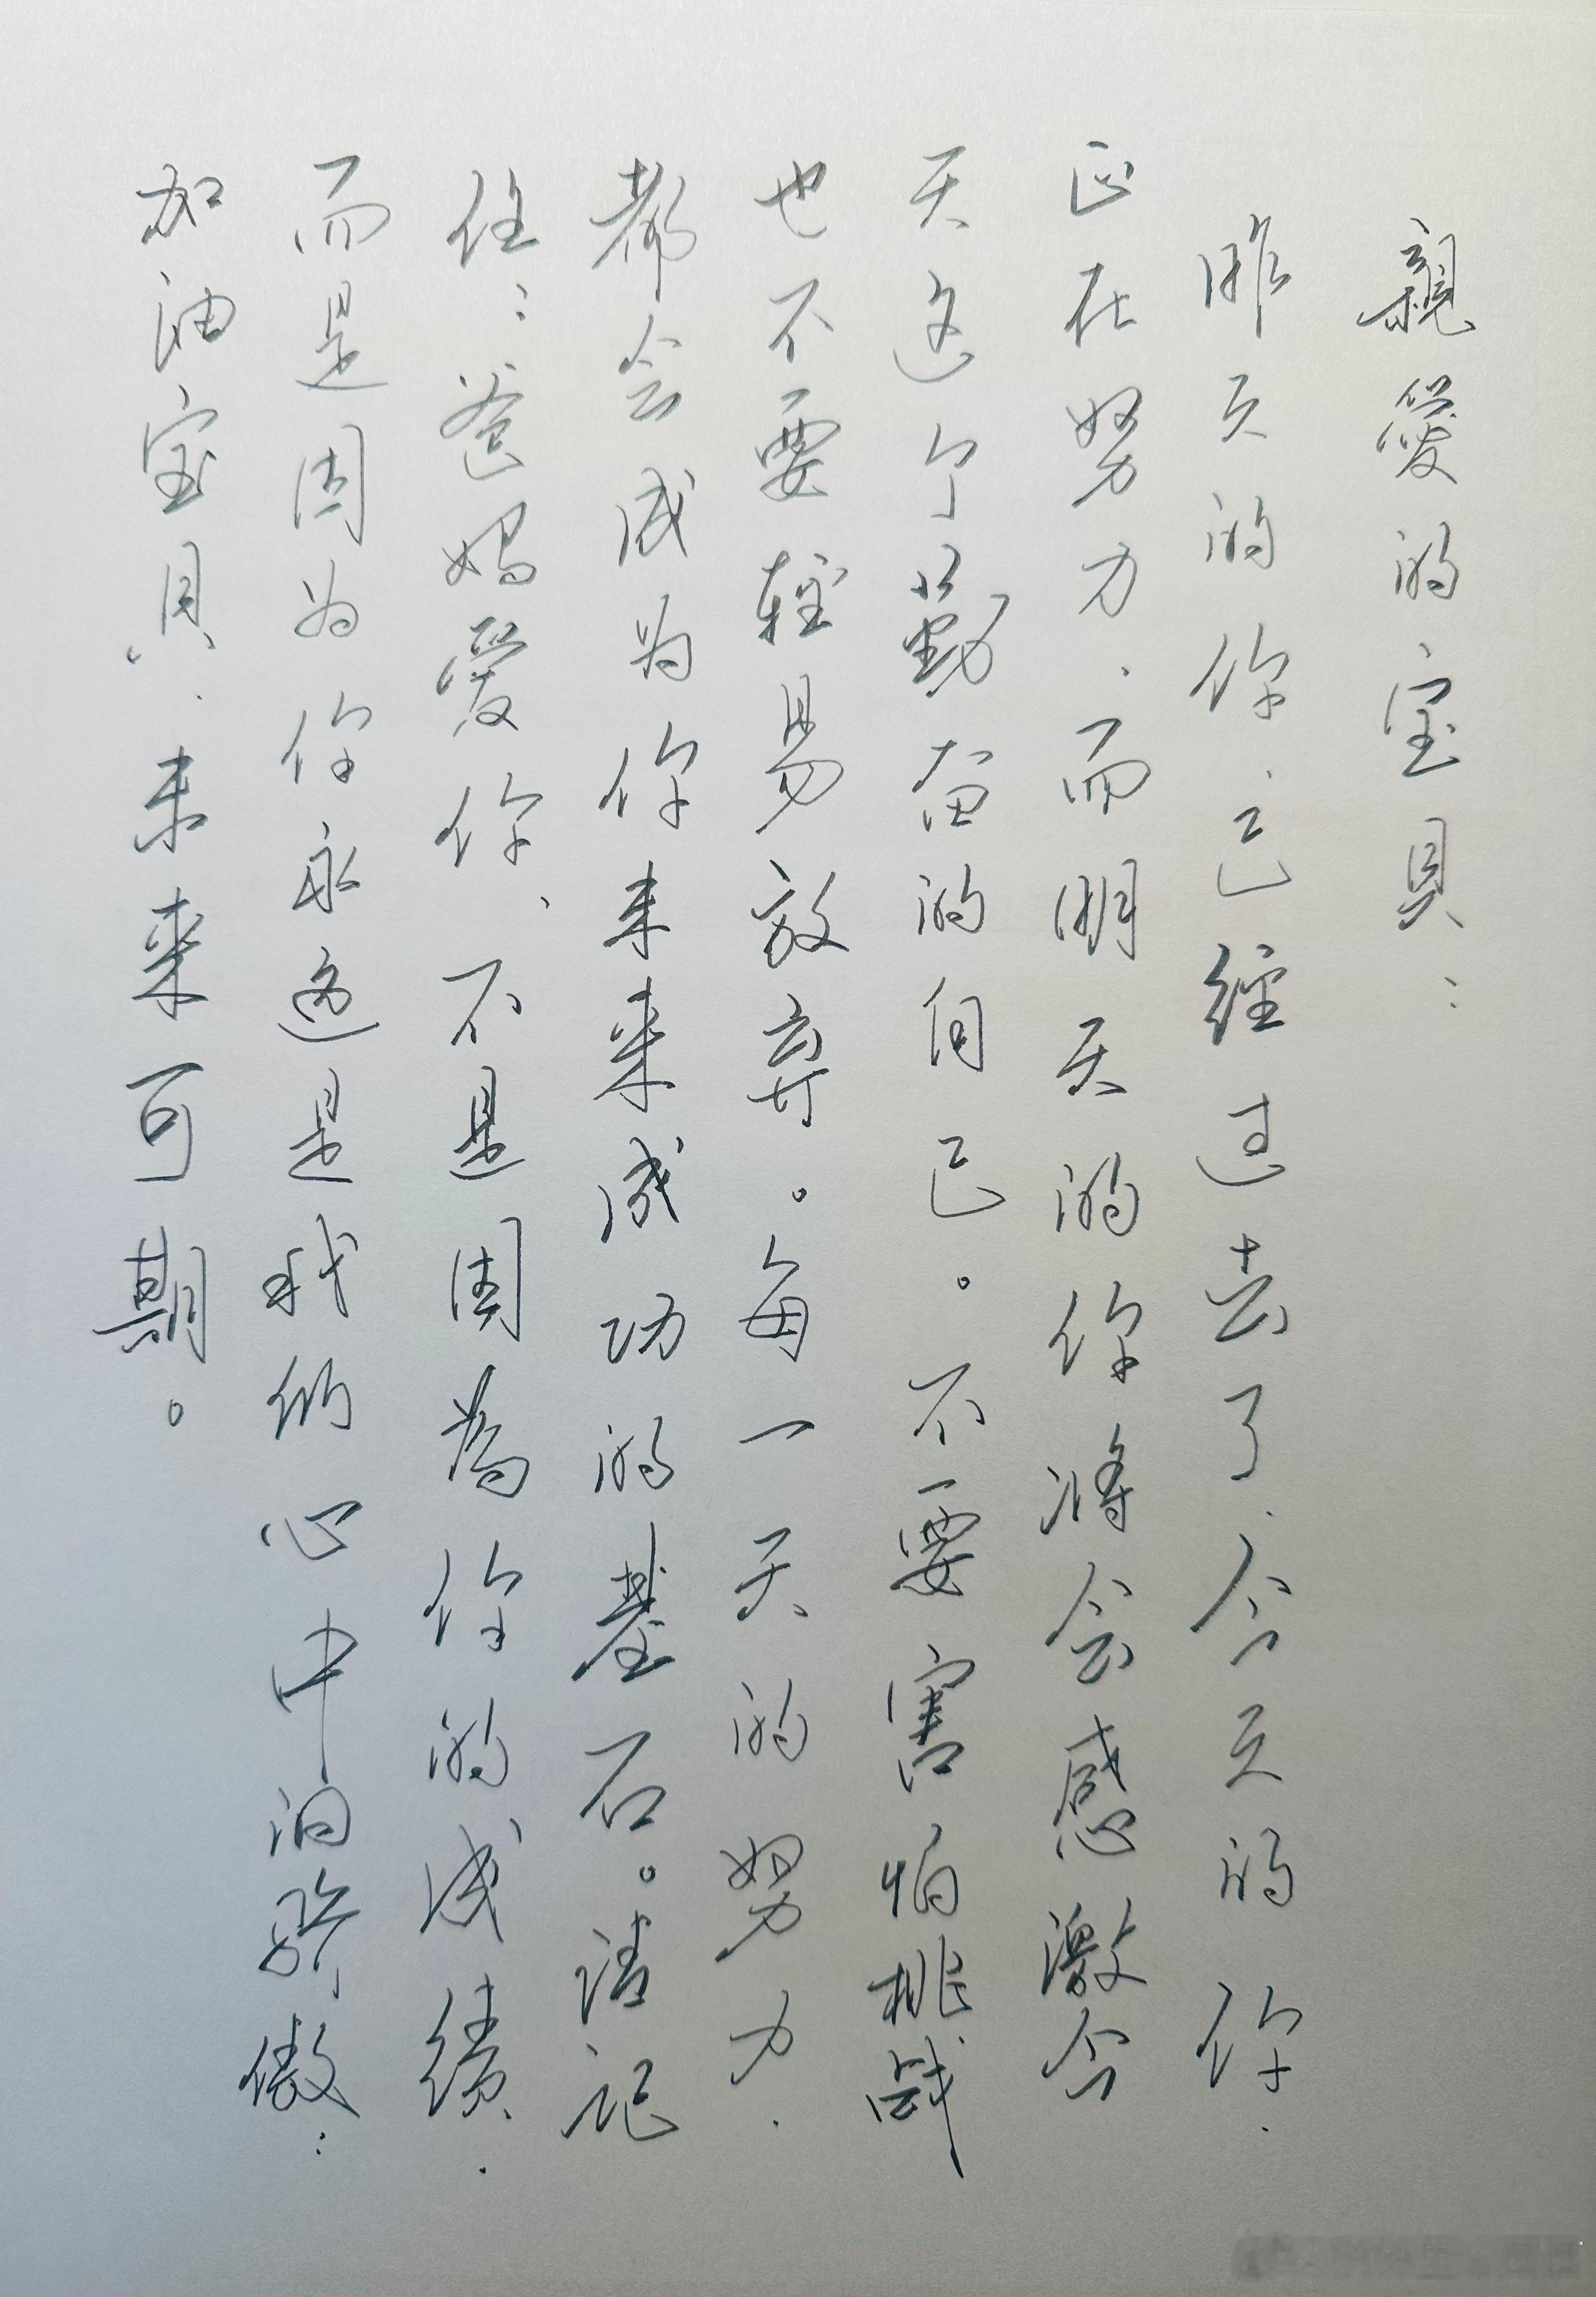 親愛的宝貝：
昨天的你.已經过去了.今天的你.
正在努力.而明天的你将会感激今
天这个勤奋的自己。不要害怕挑战
也不要轻易放弃。每一天的努力.
都会成为你未来成功的基石。请记
住：爸媽愛你、不是因為你的成绩.
而是因为你永远是我们心中的骄傲：
加油宝貝.未来可期。